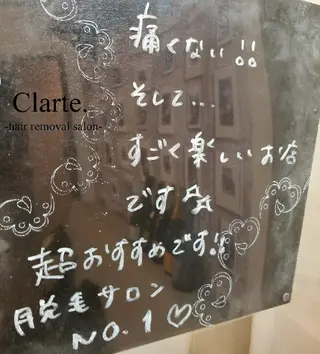 痛くない!!
Clarte.
-hair removal salon-
そして...
すごく楽しいお店
です☆
超おすすめです!!
脱毛サロン
NO.1♡